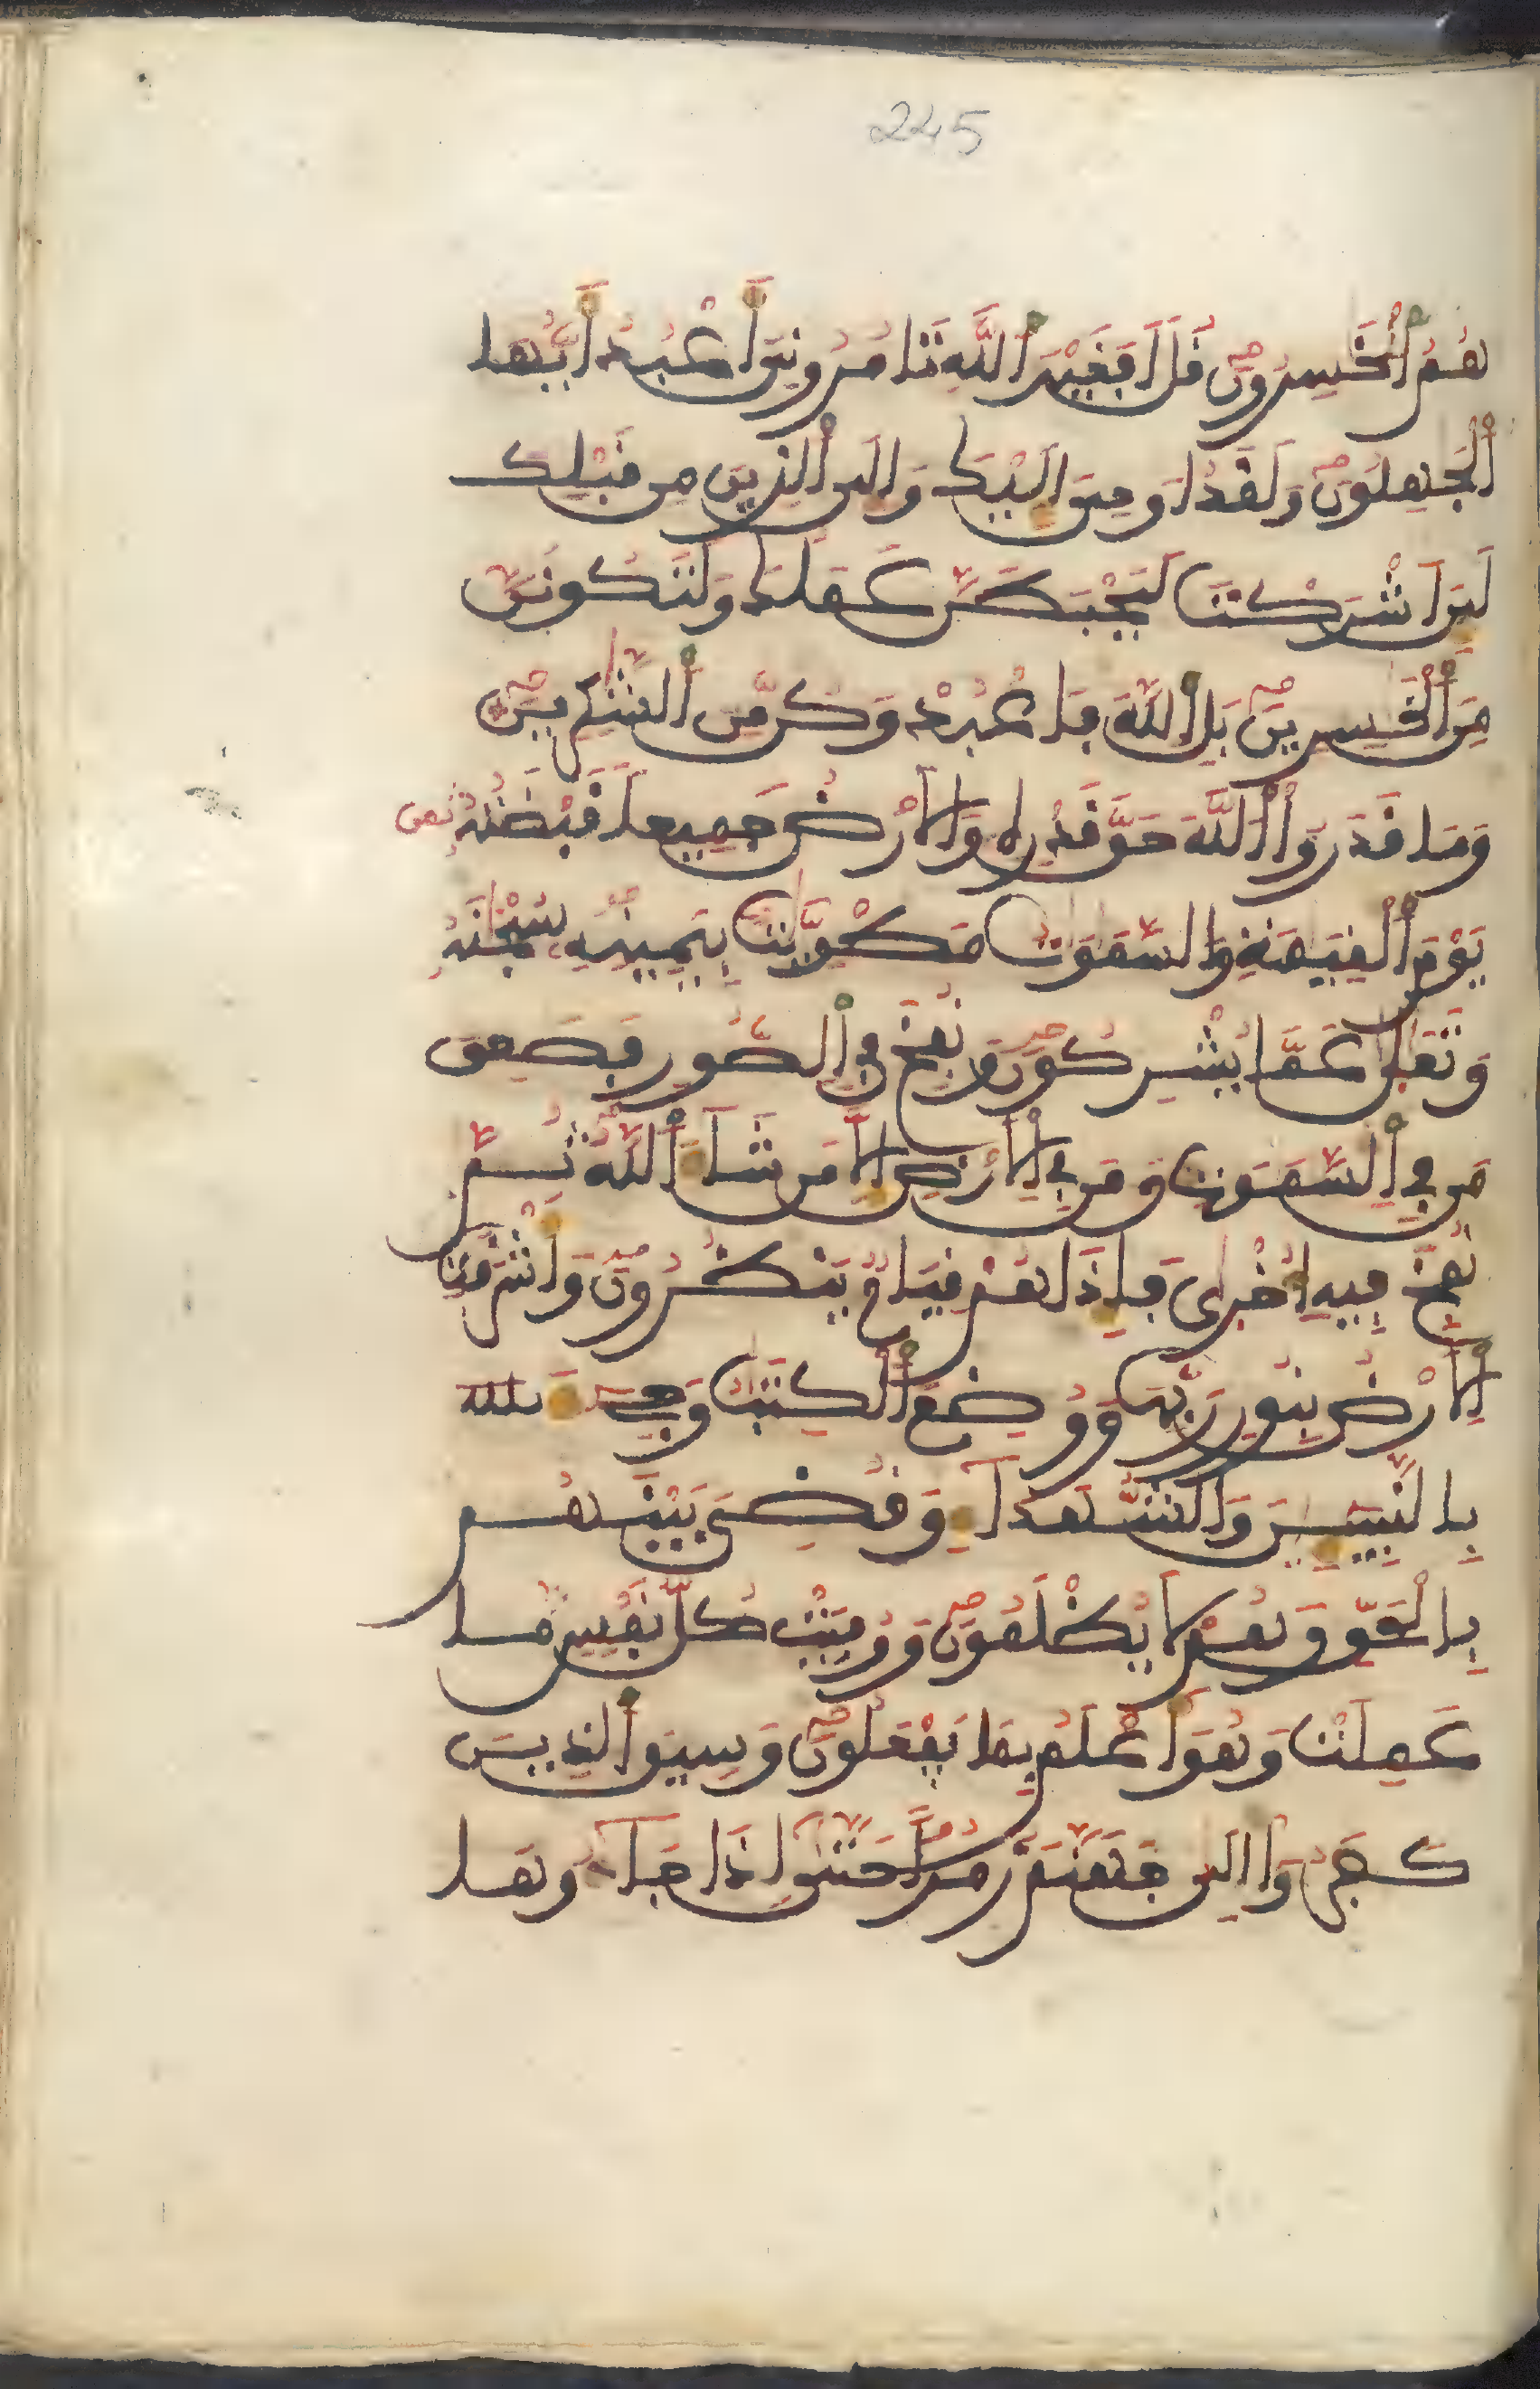 245
هُمُ الْخَسِرُونَ قُلْ أَفَغَيْرَ اللَّهِ تَامُرُونِيَ أَعْبُدُ أَيُّهَا
الْجَهِلُونَ وَلَقَدُ اوحِيَ إِلَيْكَ وَإِلَى الذِينَ مِن قَبْلِكَ
لَئِنَ اشْرَكْتَ لَيَحْبَطَنَّ عَمَلُكَ وَلَتَكُونَنَّ
مِنَ الْخَسِرِينَ بَلِ اللَّهَ فَاعْبُدْ وَكُن مِّنَ الشَّكِرِينَ
وَمَا قَدَرُواْ اللَّهَ حَقَّ قَدْرِهِ وَالارْضُ جَمِيعاً قَبْضَتُهُ
يَوْمَ الْقِيَمَةِ وَالسَّمَوَتُ مَطْوِيَّتٌ بِيَمِينِهِ سُبْحَنَهُ
وَتَعَلَى عَمَّا يُشْرِكُونَ وَنُفِخَ فِي الصُّورِ فَصَعِقَ
مَن فِي السَّمَوَتِ وَمَن فِي الارْضِ إِلاَّ مَن شَاءَ اللَّهُ ثُمَّ
نُفِخَ فِيهِ أُخْرَى فَإِذَا هُمْ قِيَامٌ يَنظُرُونَ وَأَشْرَقَتِ
الارْضُ بِنُورِ رَبِّهَا وَوُضِعَ الْكِتَبُ وَجِيءَ
بِالنَّبِيِّينَ وَالشُّهَدَاءِ وَقُضِيَ بَيْنَهُم
بِالْحَقِّ وَهُمْ لاَ يُظْلَمُونَ وَوُفِّيَتْ كُلُّ نَفْسٍ مَّا
عَمِلَتْ وَهُوَ أَعْلَمُ بِمَا يَفْعَلُونَ وَسِيقَ الذِينَ
كَفَرُواْ إِلَى جَهَنَّمَ زُمَراً حَتَّى إِذَا جَاءُوهَا